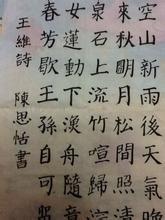 空山新雨後天氣晚
來秋明月松間照清
泉石上流竹喧歸浣
女蓮動下漁舟隨意
春芳歇王孫自可留
王維詩 陳思帖書